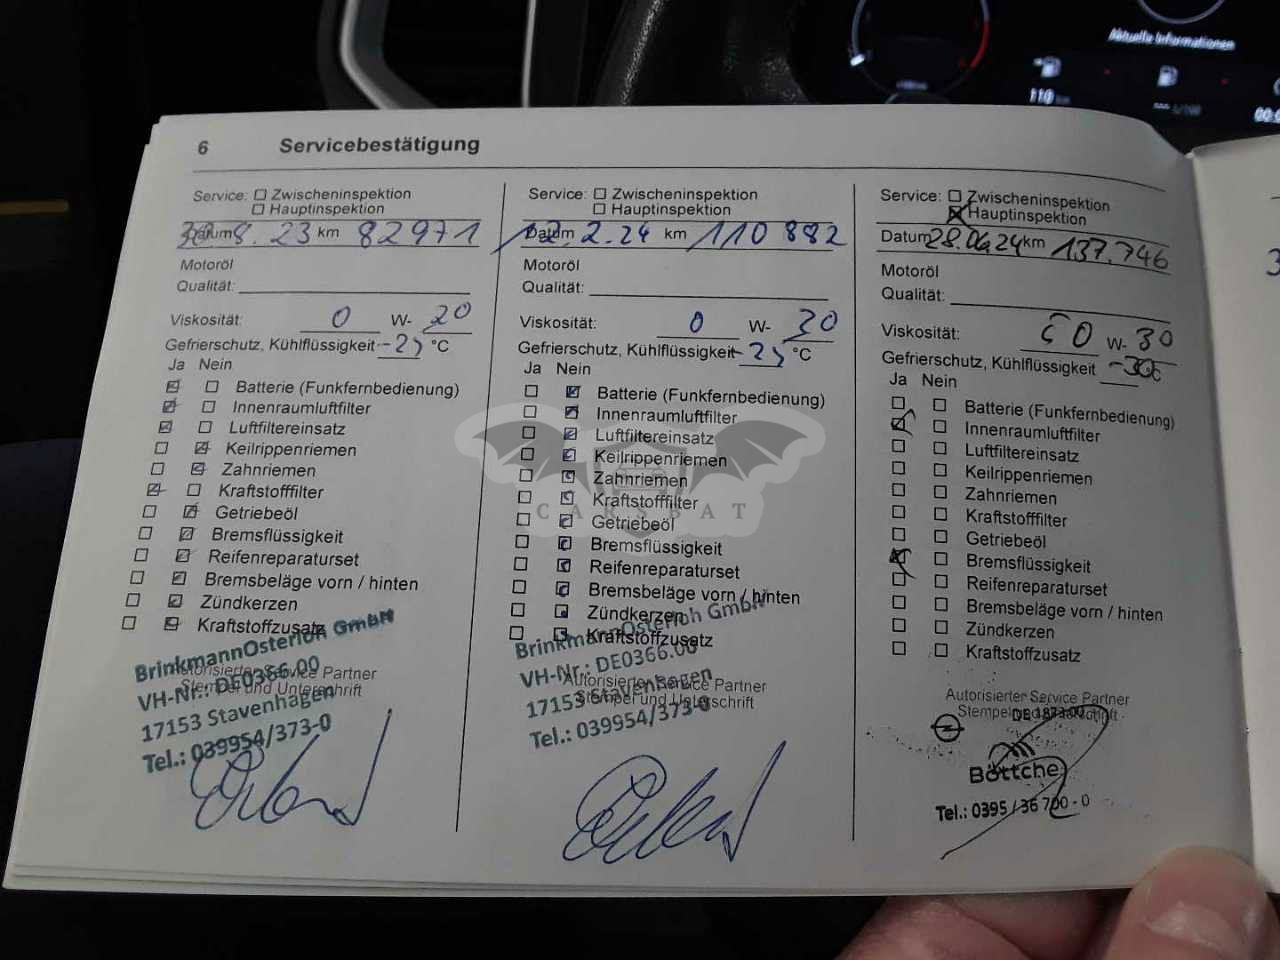 Aktuelle Informationen
110
6 Servicebestätigung
Service: Zwischeninspektion
Hauptinspektion
Datum 30.8.23 km 82971
Motoröl
Qualität:
Viskosität: 0 W- 20
Gefrierschutz, Kühlflüssigkeit -25 °C
Ja Nein
Batterie (Funkfernbedienung)
Innenraumluftfilter
Luftfiltereinsatz
Keilrippenriemen
Zahnriemen
Kraftstofffilter
Getriebeöl
Bremsflüssigkeit
Reifenreparaturset
Bremsbeläge vorn / hinten
Zündkerzen
Kraftstoffzusatz
BrinkmannOsterloh GmbH
Autorisierter Service Partner
VH-Nr.: DE0366.00
Stempel und Unterschrift
17153 Stavenhagen
Tel.: 039954/373-0
Service: Zwischeninspektion
Hauptinspektion
Datum 12.2.24 km 110882
Motoröl
Qualität:
Viskosität: 0 W- 30
Gefrierschutz, Kühlflüssigkeit -25 °C
Ja Nein
Batterie (Funkfernbedienung)
Innenraumluftfilter
Luftfiltereinsatz
Keilrippenriemen
Zahnriemen
Kraftstofffilter
Getriebeöl
Bremsflüssigkeit
Reifenreparaturset
Bremsbeläge vorn / hinten
Zündkerzen
Kraftstoffzusatz
BrinkmannOsterloh GmbH
VH-Nr.: DE0366.00
Autorisierter Service Partner
17153 Stavenhagen
Stempel und Unterschrift
Tel.: 039954/373-0
Service: Zwischeninspektion
Hauptinspektion
Datum 28.06.24 km 137.746
Motoröl
Qualität:
Viskosität: 0 W- 30
Gefrierschutz, Kühlflüssigkeit -30 °C
Ja Nein
Batterie (Funkfernbedienung)
Innenraumluftfilter
Luftfiltereinsatz
Keilrippenriemen
Zahnriemen
Kraftstofffilter
Getriebeöl
Bremsflüssigkeit
Reifenreparaturset
Bremsbeläge vorn / hinten
Zündkerzen
Kraftstoffzusatz
Autorisierter Service Partner
Stempel und Unterschrift
Böttche
Tel.: 0395 / 36 700 - 0
CARSBAT